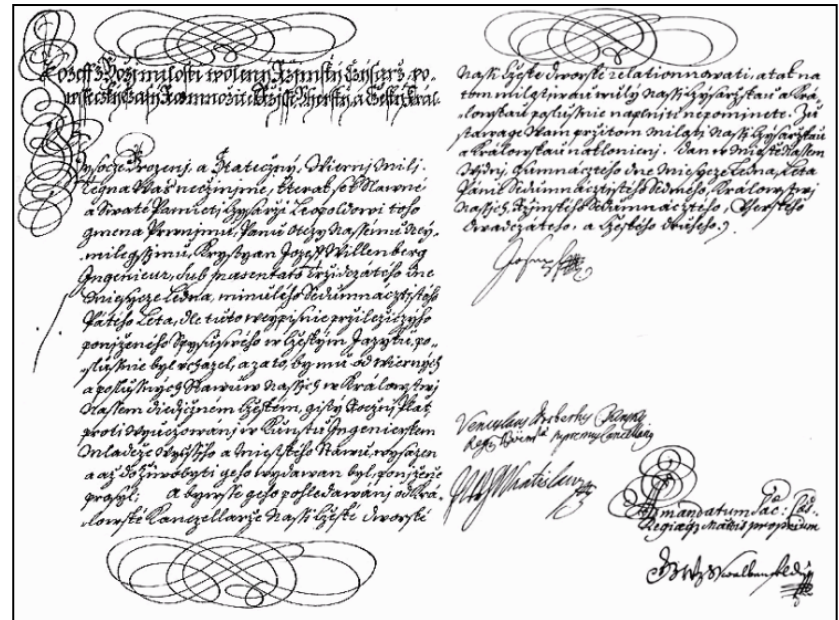 Jozeff z Boží milosti wolený Ržimský Cýsarž, po-
Wysoce Urozenj, a Statečný, Wiernj Milj.
Tegna Wás nečinjme, kterak, set Slawné
a Swaté Pamieti Cysařzi Leopoldowi toho
gména Prwnjmu, Panu otczy Nassemu Ney-
milegssjmu, Krystyan Jozeff Willenberg
Ingenieur, sub praesentato Tržidczátého dne
Miesycze Ledna, minulého Sedumnácztistého
Pátého Léta, dle tuto w opisu přiležiczýho
poniženého Spisu swého w Czeským Jazyku, po-
slussnie byl vcházel, a za to, by mu od wierných
a poslussných Stawuw Nassych w Králowstwj
Nassem diedičném Czeském, gistý Roczný plat,
proti wyučowánj w Kunstu Ingenierskem
Mládeže wyšssjho a mieſtského Stawu, wysazen
a až do žiwobytj geho wydáwan byl, poniženie
prosyl; a byste geho pohledáwánj od Krá-
lowské Kanczelláře Nassj Czeské Dworské
Nassj Czeské Dworské relationnowati, a tak na
tom milostiwau wůly Nassj Cysařskau a Krá-
lowskau poslussnie naplniti nepominete. Zů-
stáwage Wám přitom milostj Nassj Cysařskau
a Králowskau naklonieni. Dan w Miestie Nassem
Wýdnj, Osmnácztého dne Miesycze Ledna, Léta
Pánie Sedumnácztistého Sedmého, Králowstwj
Nassych, Ržimského Sedumnácztého, Uherského
Dwadczátého, a Czeského druhého.
Joseph
Venceslaus Norbertus Kinsky
Regis Bohem. supremus Cancellarius
Wratislaw
Ad mandatum Sac: Caes:
Regiaeq. Mattis proprium